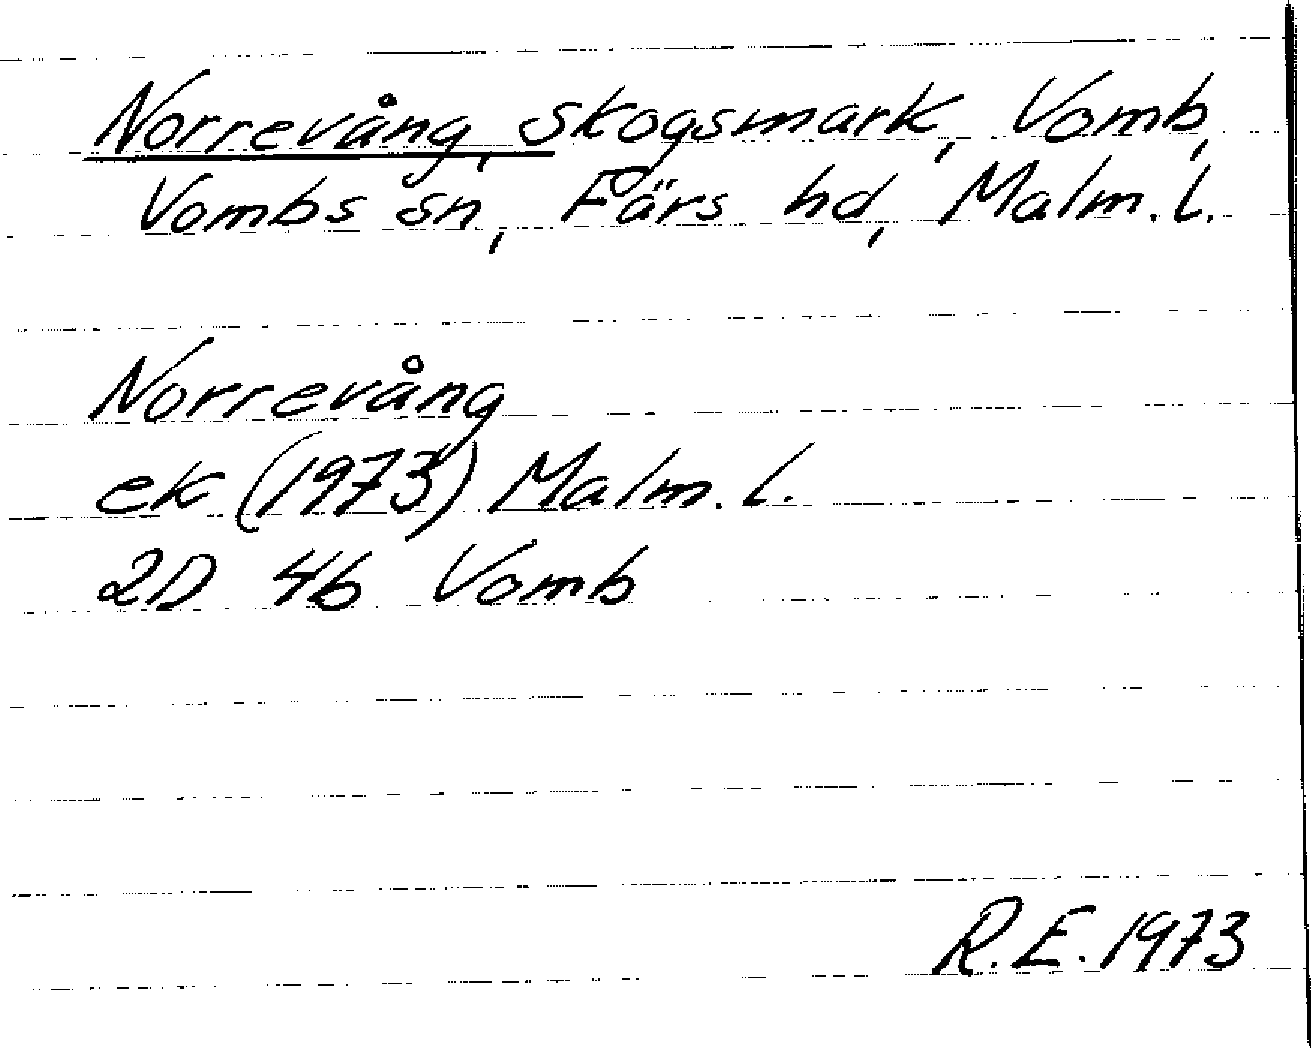 Norrevång, skogsmark, Vomb,
Vombs sn, Färs hd, Malm. l.
Norrevång
ek (1973) Malm. l.
2D 4b Vomb
R.E. 1973